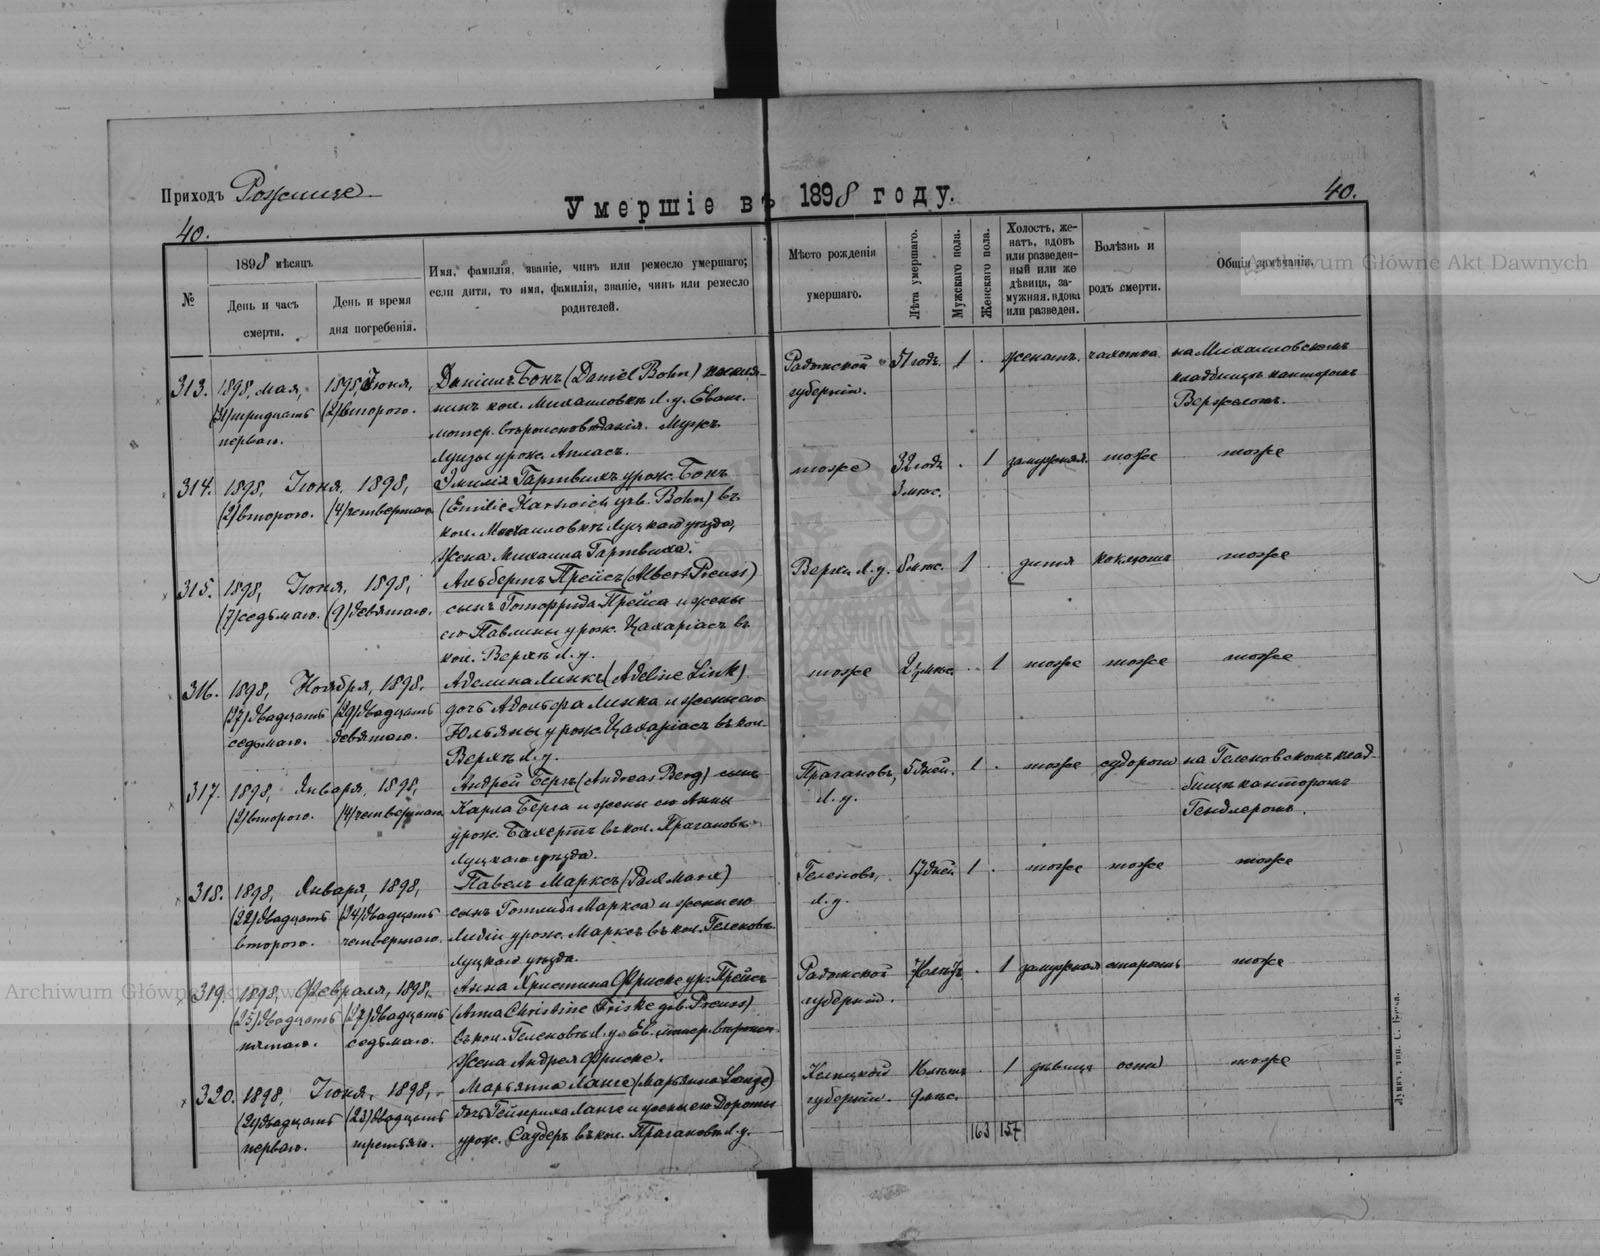 Приходъ Рожище
Умершіе въ 1898 году.
40.
40.
№
1898 мѣсяцъ
День и часъ смерти.
День и время дня погребенія.
Имя, фамилія, званіе, чинъ или ремесло умершаго;
если дитя, то имя, фамилія, званіе, чинъ или ремесло
родителей.
Мѣсто рожденія
умершаго.
Лѣта умершаго.
Мужскаго пола.
Женскаго пола.
Холостъ, же-
натъ, вдовъ
или разведен-
ный или же
дѣвица, за-
мужняя, вдова
или разведен.
Болѣзнь и
родъ смерти.
Общія примѣчанія.
313.
1898, мая,
(31) тридцать
перваго.
1898, Іюня,
(2) второго.
Даніилъ Бонъ (Daniel Bohn)
нинъ кол. Михаиловкѣ Л. у. Еванг.
лютер. вѣроисповѣданія. Мужъ
Луизы урож. Апласъ.
Радомской
губерніи.
51 годъ.
1
женатъ.
чахотка
на Михаиловскомъ
кладбищѣ канторомъ
314.
1898, Іюня, 1898,
(2) второго. (4) четвертаго.
Эмилія Гартвихъ урож. Бонъ
(Emilie Hartwich geb. Bohn) въ
кол. Михаиловкѣ Луцкаго уѣзда,
Жена Михаила Гартвиха.
тоже
32 годъ
3 мѣс.
1
замужняя.
тоже
тоже
315.
1898, Іюня, 1898,
(7) седьмаго. (9) девятаго.
Альбертъ Прейсъ (Albert Preuss)
сынъ Готфрида Прейса и жены
его Павлины урож. Цахаріасъ въ
кол. Верхѣ Л. у.
Верхи Л. у.
мѣс.
1
дитя
коклюшъ
тоже
316.
1898, Ноября, 1898.
(27) двадцать (29) двадцать
седьмаго. девятаго.
Аделина Линкъ (Adeline Link)
дочь Адольфа Линка и жены его
Юльяны урож. Цахаріасъ въ кол.
Верхѣ Л. у.
тоже
мѣс.
1
тоже
тоже
тоже
317.
1898, Января, 1898,
(2) второго. (4) четвертаго.
Андрей Бергъ (Andreas Berg) сынъ
Карла Берга и жены его Анны
урож. въ кол. Прагановъ
Луцкаго уѣзда.
Прагановъ,
Л. у.
5 дней.
1
тоже
судороги
на Геленовскомъ клад-
бищѣ канторомъ
318.
1898, Января, 1898,
(22) двадцать (24) двадцать
второго. четвертаго.
Павелъ Марксъ (Paul Marx)
сынъ Готлиба Маркса и жены его
Лидіи урож. Марксъ въ кол. Геленовѣ
Луцкаго уѣзда.
Геленовъ,
Л. у.
17 дней
1
тоже
тоже
тоже
319.
1898, Февраля, 1898,
(25) двадцать (27) двадцать
пятаго. седьмаго.
Анна Христина Фриске ур. Прейсъ
(Anna Christine Friske geb. Preuss)
въ кол. Геленовѣ Л. у. Ев. лютер. вѣроисп.
Жена Андрея Фриске.
Радомской
губерніи.
лѣтъ
1
замужняя
старость
тоже
320.
1898, Іюня, 1898,
(21) двадцать (23) двадцать
перваго. третьяго.
Марьянна Ланге (Марьянна Lange)
дочь Гейнриха Ланге и жены его Дороты
урож. Саудеръ въ кол. Прагановѣ Л. у.
губерніи.
лѣтъ
9 мѣс.
1
дѣвица
оспа
тоже
163 157
Archiwum Główne Akt Dawnych
Archiwum Główne Akt Dawnych